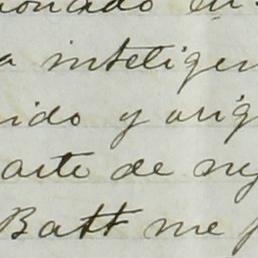 a inteligen
nido y orig
arte de my
Batt me p